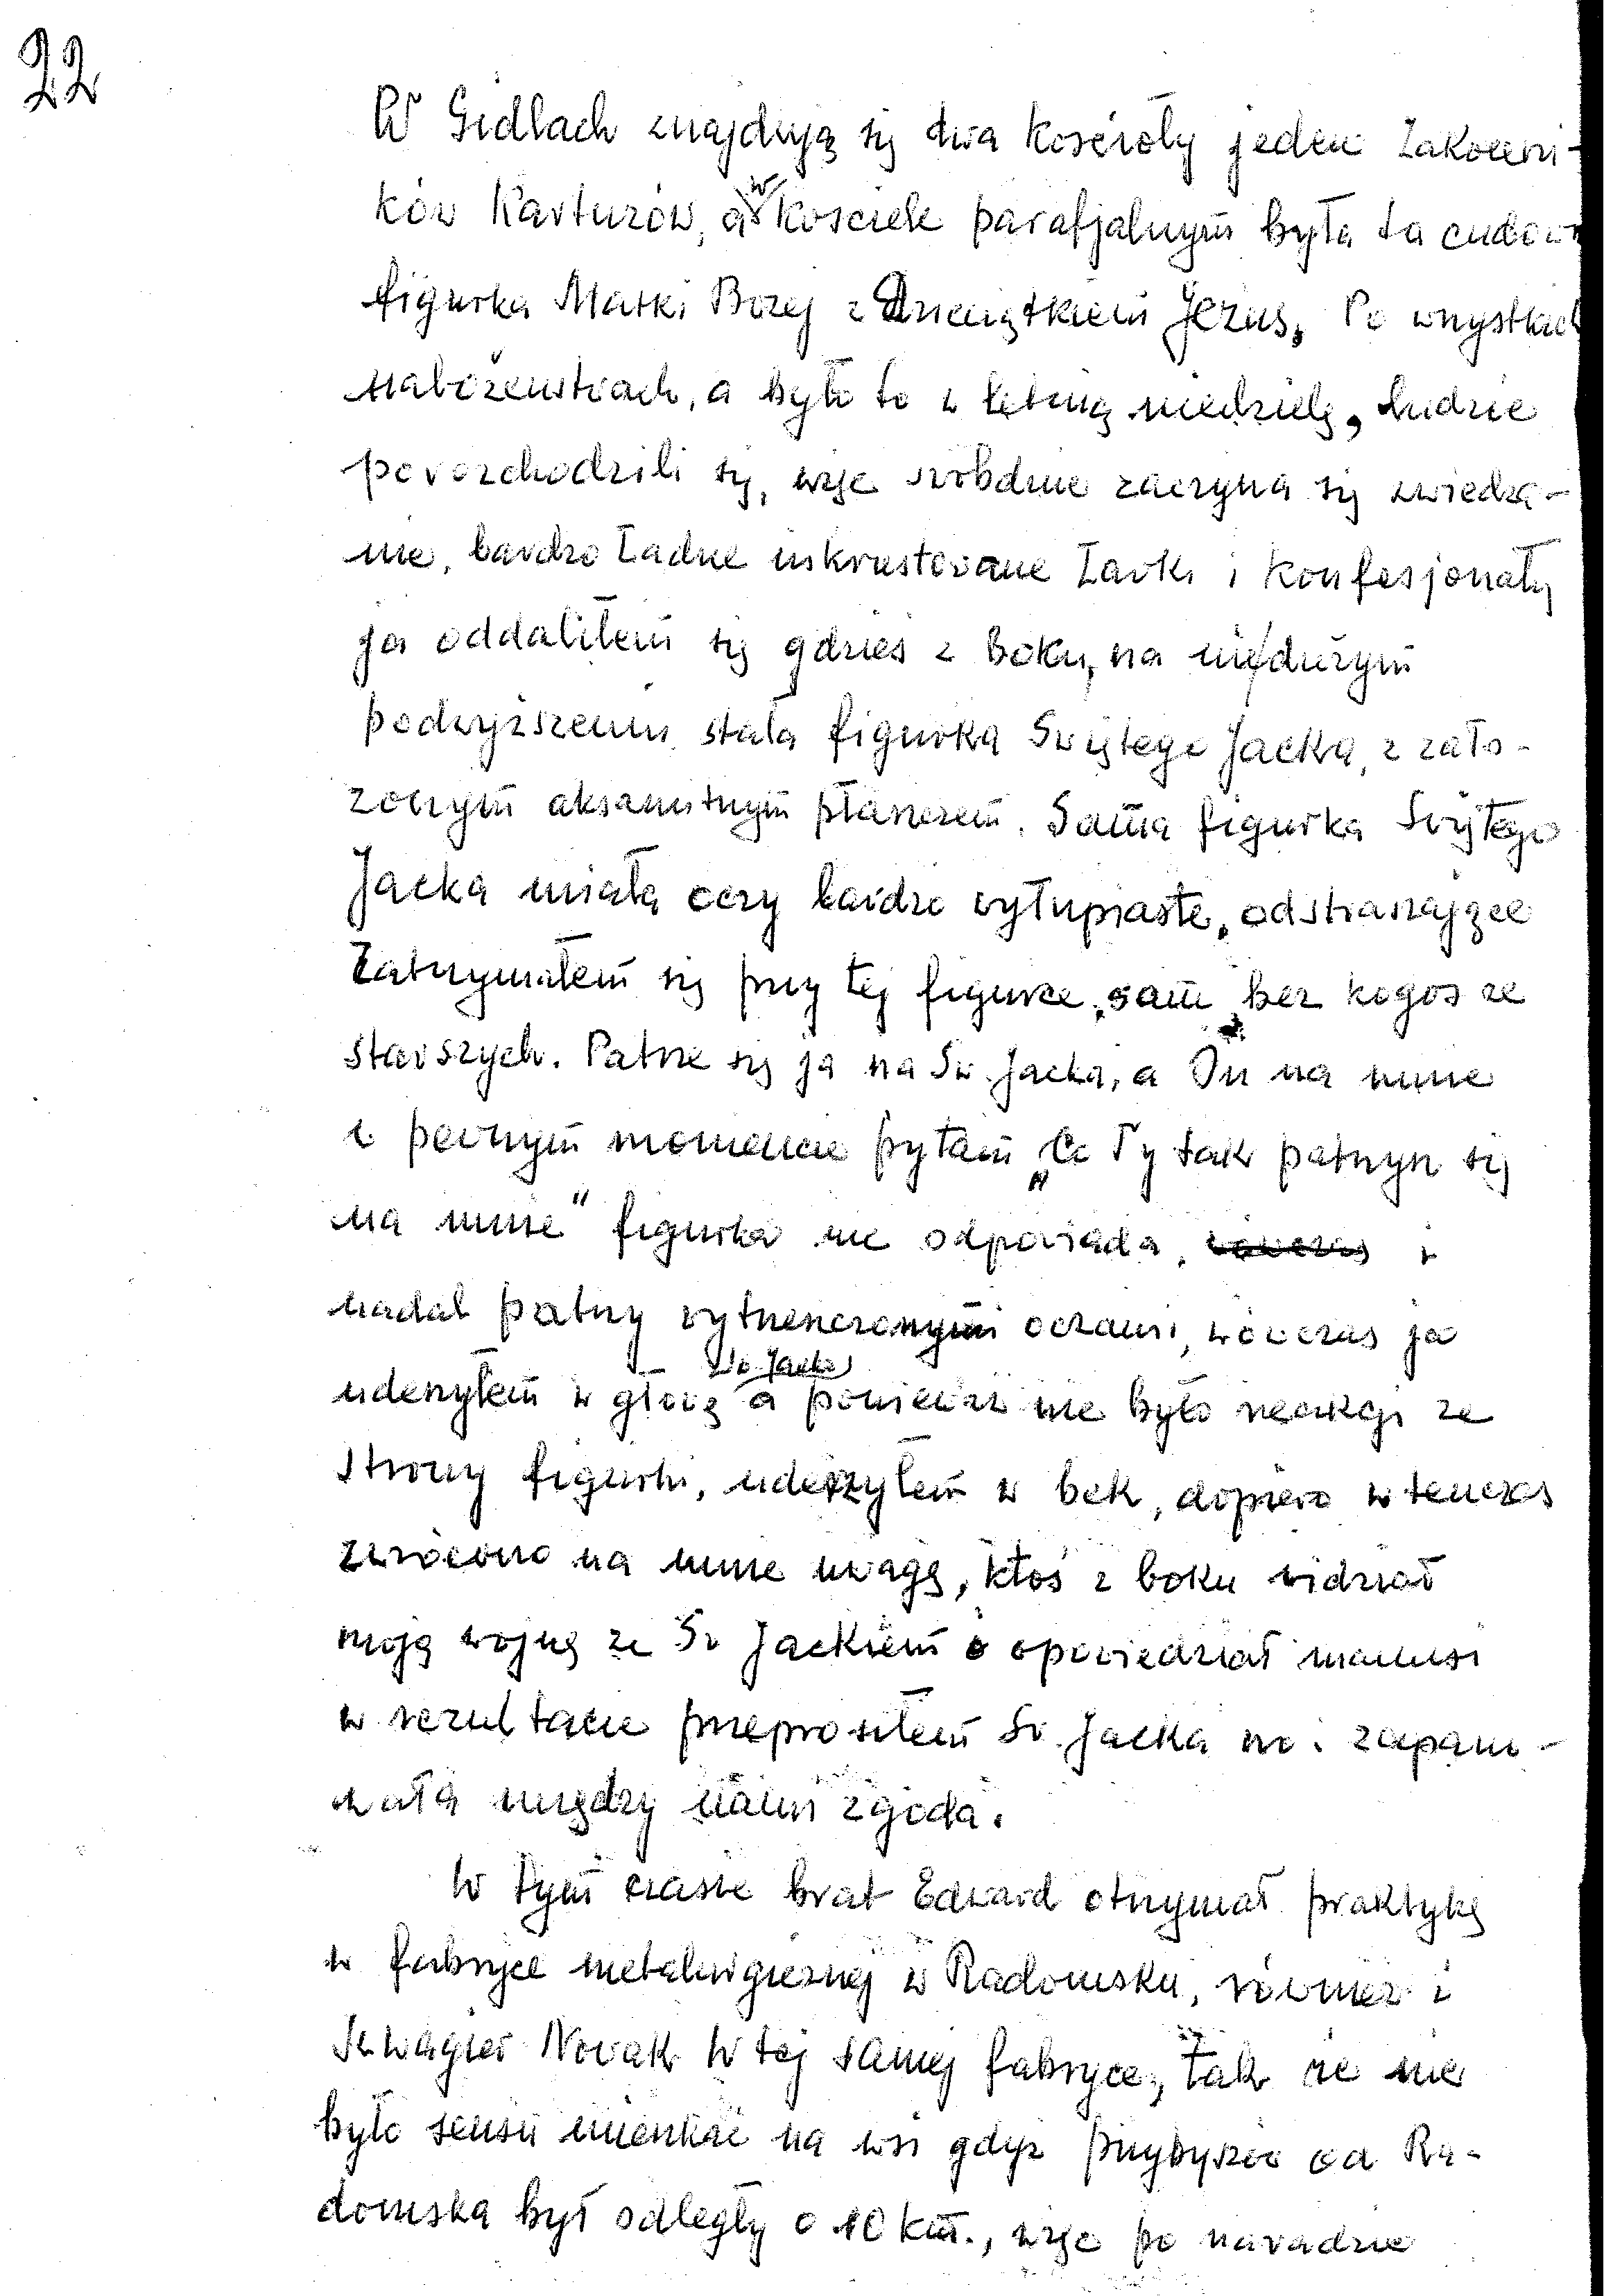 22
W Gidlach znajdują się dwa kościoły jeden Zakonni-
ków Kartuzów, a w kościele parafjalnym była ta cudown
figurka Matki Bożej z Dzieciątkiem Jezus, Po wszystkich
nabożeństwach, a było to w letnią niedzielę, Ludzie
porozchodzili się, więc swobdnie zaczyna się zwiedza-
nie, bardzo ładne inkrustowane Ławki i Konfesjonały
ja oddaliłem się gdzieś z boku, na niedużym
podwyższeniu stała figurka Świętego Jacka, z zało-
żonym aksamitnym płaszczem. Sama figurka Świętego
Jacka miała oczy bardzo wyłupiaste, odstraszające
Zatrzymałem się przy tej figurce, sam bez kogoś ze
starszych. Patrze się ja na Św. Jacka, a On na mnie
w pewnym momencie pytam „Co Ty tak patrzysz się
na mnie" figurka nie odpowiada, wówczas i
nadal patrzy wytrzeszczonymi oczami, wówczas ja
uderzyłem w głowę Św. Jacka a ponieważ nie było reakcji ze
strony figurki, uderzyłem w bok, dopiero wtenczas
zwrócono na mnie uwagę, ktoś z boku widział
moją wojnę ze Św Jackiem i opowiedział mamusi
w rezultacie przeprosiłem Św. Jacka no i zapano-
wała między nami zgoda.
W tym czasie brat Edward otrzymał praktykę
w fabryce metalurgicznej w Radomsku, również i
Szwagier Nowak w tej samej fabryce, tak że nie
było sensu mieszkać na wsi gdyż Przybyszów od Ra-
domska był odległy o 10 km., więc po naradzie